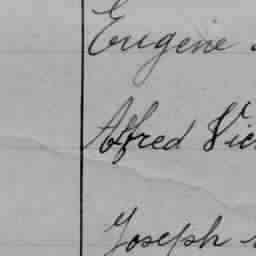 Eugene
Alfred Vic
Joseph